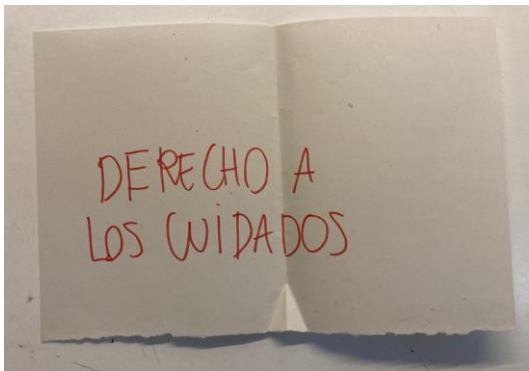 DERECHO A
LOS CUIDADOS